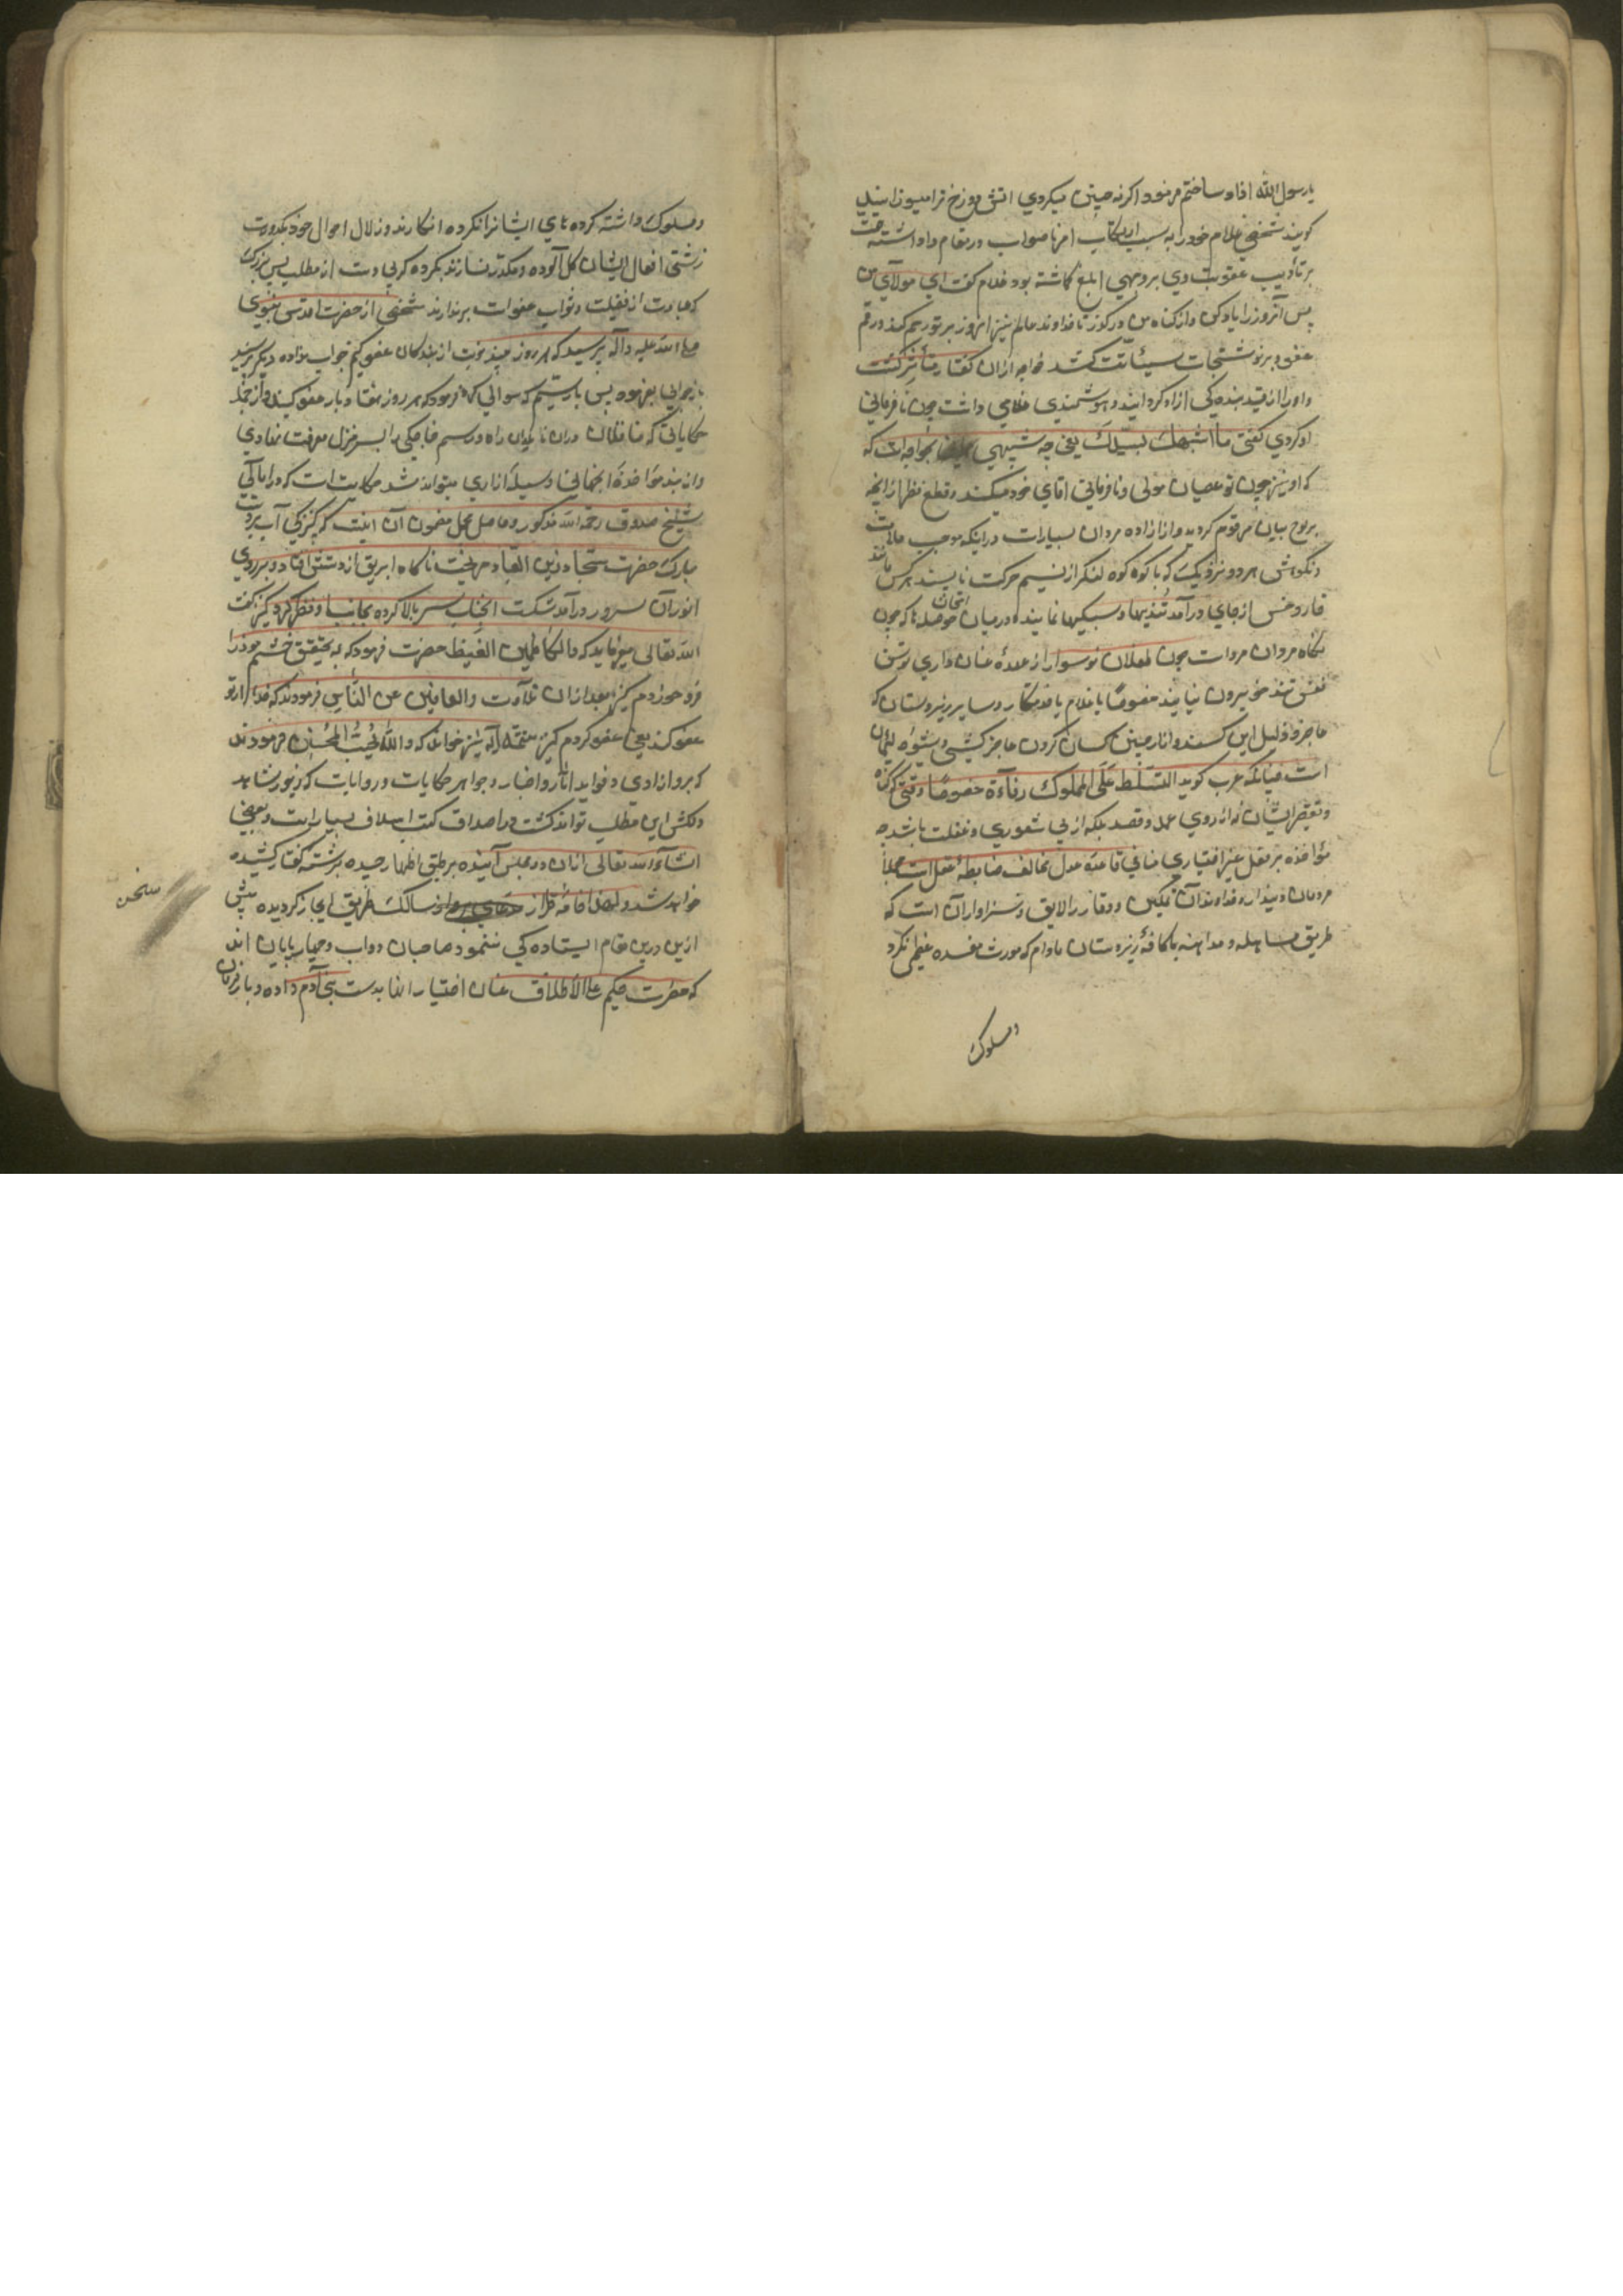 یا رسول الله آزاد ساختم فرمود اگر نه چنین میکردی آتش دوزخ ترا میسوزانید
کویند شخصی غلام خود را به سبب ارتکاب امر ناصواب در مقام داداشته
بر تأدیب عقوبت وی بر وجهی ابلغ کماشته بود غلام کفت ای مولای من
پس آنروز را یاد کن و از کناه من درکذر تا خداوند عالم نیز امروز بر تو رحم کند و رقم
عفو بر نوشتجات سیئاتت کشد خواجه ازان کفتار متأثر کشت
و او را از قید بنده کی ازاد کردانید و هوشمندی غلامی داشت چون نافرمانی
او کردی کفتی ما اشبهک بسیدک یعنی چه شبیهی بخواجه ات که
که او نیز چون تو عصیان مولی و نافرمانی اقای خود میکند و قطع نظر از آنچه
بر لوح بیان مرقوم کردید و از ازاده مردان بسیار است در اینکه موجب
هر دو نزدیک که با کوه کوه لنکر از نسیم حرکت ناپسند هر کس مانند
خار و خس از جای درآمد تندیها و سبکیها نمایند و در میان حوصله ها که چون
نکاه مردان مرد است چون طفلان نوسوار از عهدهٔ عنان داری توسن
نفس تند خو بیرون نیایند خصوصاً با غلام یا خدمتکار و سایر زیردستان که
عاجز و ذلیل این کسند و ازار چنین کسان کردن عاجز کشی و شیوه لئیمان
است چنانکه عرب کوید التسلط علی المملوک دناءة خصوصاً وقتی که کناه
و تقصیر ایشان نه از روی عمد و قصد بلکه از بی شعوری و غفلت باشد چه
مؤاخذه بر فعل غیر اختیاری منافی قاعدهٔ عدل و مخالف ضابطهٔ عقل است مجملاً
مردمان دیندار و خداوندان تمکین و وقار را لایق و سزاوار آن است که
طریق مساهله و مداهنه با کافهٔ زیردستان مادام که مورث مفسده عظیم نکردد
و سلوک
و سلوک داشته کرده های ایشانرا نکرده انکارند و زلال احوال خود بکدورت
زشتی افعال ایشان کل آلوده و مکدر نسازند بکرده کویی دست از مطلب پس بزرک
که عبارت از فضیلت و ثواب عفو است برندارند شخصی از حضرت اقدس نبوی
صلی الله علیه و آله پرسید که هر روز چند نوبت از بندکان عفو کنم جواب نداده دیکر پرسید
باز جوابی نفرموده پس بار سیم که سوالی کرد فرمود که هر روز هفتاد بار عفو کنید و از جمله
حکایاتی که غافلان دران نادیدان راه و رسم خواجکی را بسر منزل معرفت هادی
و از بند مواخذهٔ انجهانی وسیلهٔ ازادی میتواند شد حکایت است که در امالی
شیخ صدوق رحمه الله مذکور و حاصل مجمل مضمون آن اینست که کنیزکی آب بر دست
مبارک حضرت سجاد زین العباد میریخت ناکاه ابریق از دستش افتاد و بر روی
انور آن سرور درآمد شکست انجناب سر بالا کرده بجانب او نظر کرد کنیز کفت
الله تعالی میفرماید که والکاظمین الغیظ حضرت فرمود که به تحقیق خشم خود را
فرو خوردم کنیز بعد ازان تلاوت والعافین عن الناس فرمودند که خدا از تو
عفو کند یعنی عفو کردم کنیز تتمهٔ آیه نیز خواند که والله یحب المحسنین فرمودند
که برو ازادی و فواید آثار و اخبار و جواهر حکایات و روایات که زیور شاهد
دلکش این مطلب تواند کشت در اصداف کتب اسلاف بسیار است و بعضی
انشاءالله تعالی ازان در مجلس آینده بر طبق اظهار چیده برشته کفتار کشیده
خواهد شد و لهذا خامهٔ طراز سالک طریق ایجاز کردیده پیش
ازین درین مقام ایستاده کی ننمود صاحبان دواب و چهارپایان اند
که حضرت حکیم علی الاطلاق عنان اختیار آنها بدست بنی آدم داده و بار فرمان
سخن